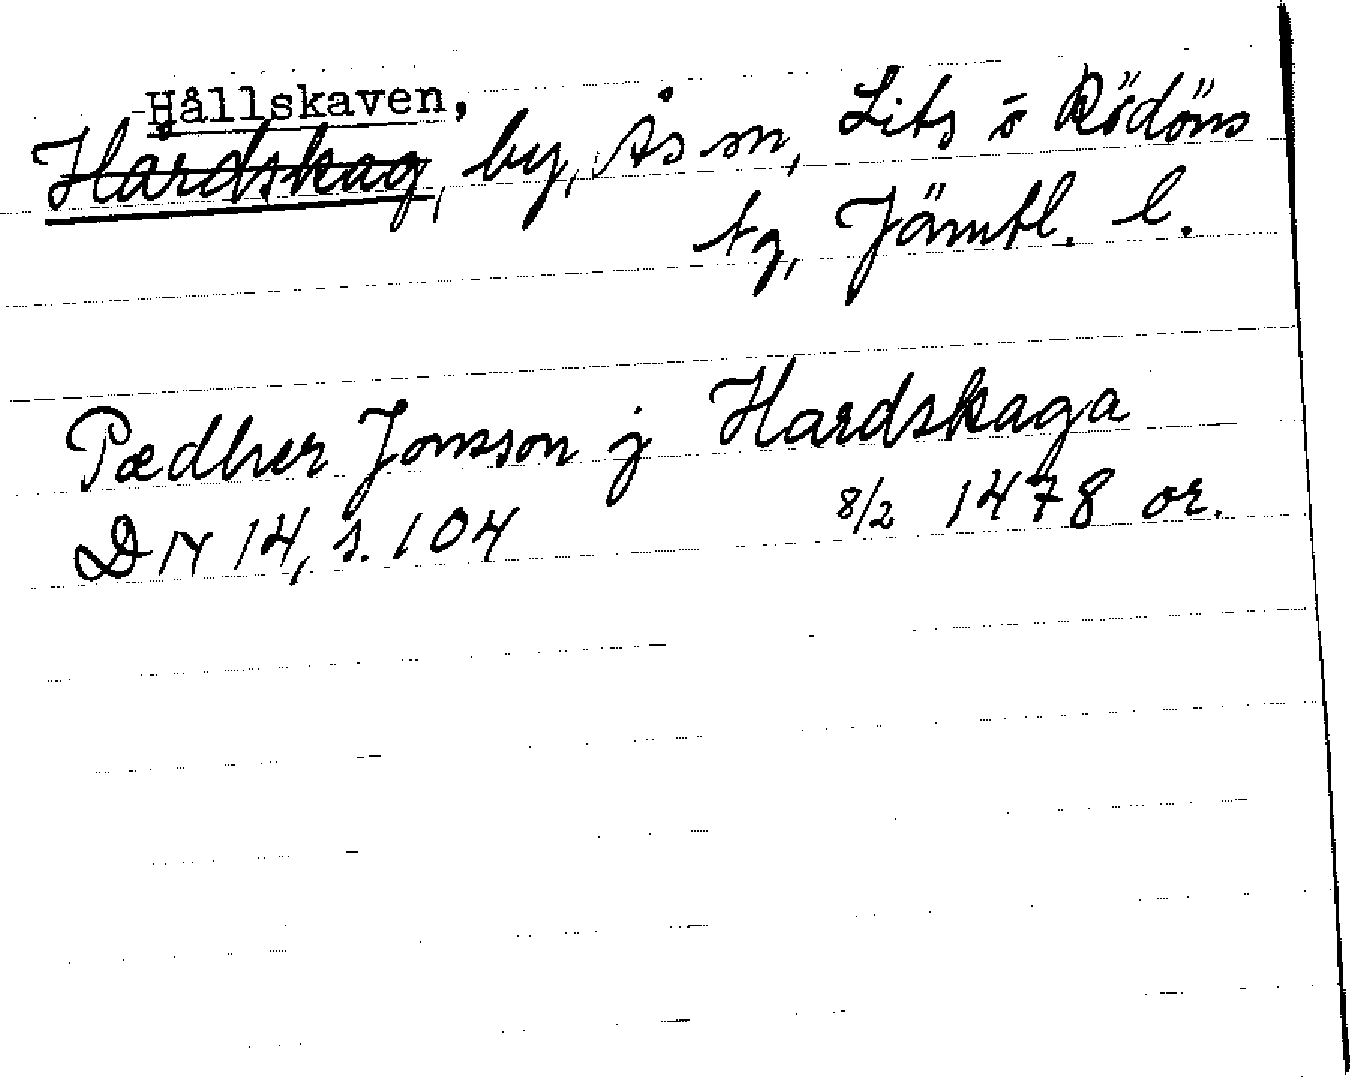 Hållskaven,
Hårdskag, by, Ås sn, Lits o Rödöns
tg, Jämtl. l.
Pædher Jonsson j Hardskaga
DN 14, s. 104 8/2 1478 or.